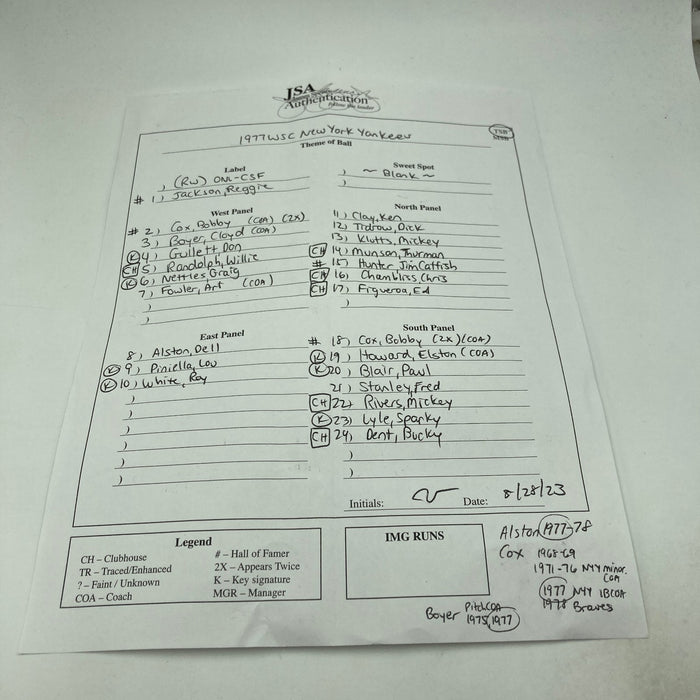 JSA
Authentication
1977 WSC New York Yankees
TSB
Theme of Ball
Label
) (RW) ONL-CSF
# 1) Jackson, Reggie
Sweet Spot
) ~ Blank ~
)
West Panel
# 2) Cox, Bobby (COA) (2X)
3) Boyer, Cloyd (COA)
K 4) Gullett, Don
CH 5) Randolph, Willie
K 6) Nettles, Graig
7) Fowler, Art (COA)
)
)
North Panel
11) Clay, Ken
12) Tidrow, Dick
13) Klutts, Mickey
CH 14) Munson, Thurman
# 15) Hunter Jim Catfish
CH 16) Chambliss, Chris
CH 17) Figueroa, Ed
)
East Panel
8) Alston, Dell
K 9) Piniella, Lou
K 10) White, Roy
)
)
)
)
)
)
South Panel
# 18) Cox, Bobby (2X) (COA)
K 19) Howard, Elston (COA)
K 20) Blair, Paul
21) Stanley, Fred
CH 22) Rivers, Mickey
K 23) Lyle, Sparky
CH 24) Dent, Bucky
)
)
Initials: Date: 8/28/23
Legend
CH – Clubhouse
TR – Traced/Enhanced
? – Faint / Unknown
COA – Coach
# – Hall of Famer
2X – Appears Twice
K – Key signature
MGR – Manager
IMG RUNS
Alston 1977-78
Cox 1968-69
1971-76 NYY minor.
COA
1977 NYY 1BCOA
1978 Braves
Boyer PitchCOA
1975, 1977